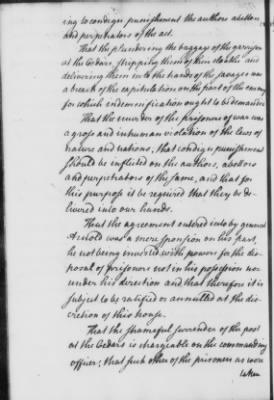 ing to condign punishment the authors abettors
and perpetrators of the act.
That the plundering the baggage of the garrison
at the Cedars stripping them of their cloaths and
delivering them into the hands of the savages was
a breach of the capitulation on the part of the enemy
for which indemnification ought to be demanded
That the murder of the prisoners of war was
a gross and inhuman violation of the laws of
nature and nations, that condign punishment
should be inflicted on the authors, abettors
and perpetrators of the same, and that for
this purpose it be required that they be de-
livered into our hands.
That the agreement entered into by general
Arnold was a mere sponsion on his part,
he not being invested with powers for the dis-
posal of prisoners not in his possession nor
under his direction and that therefore it is
subject to be ratified or annulled at the dis-
cretion of this house.
That the shameful surrender of the post
at the Cedars is chargeable on the commanding
officer; that such other of the prisoners as were
taken